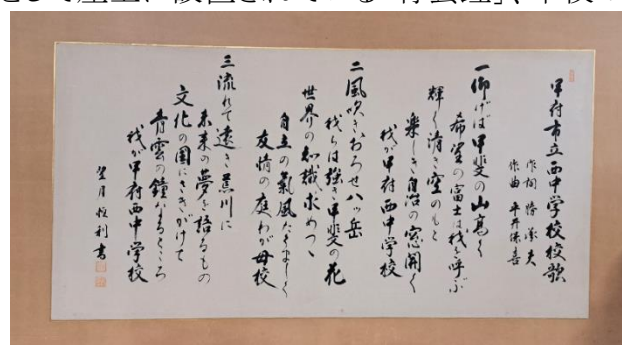 甲府市立西中学校校歌
作詞
作曲 平井保喜
一仰げば甲斐の山高く
希望の富士は我を呼ぶ
輝く清き空のもと
楽しき自治の窓開く
我が甲府西中学校
二風吹きおろせ八ッ岳
我らは強き甲斐の花
世界の知識求めつゝ
自主の氣風たくましく
友情の庭わが母校
三流れて遠き荒川に
未来の夢を語るもの
文化の園にさきがけて
青雲の鐘なるところ
我が甲府西中学校
望月恒利書